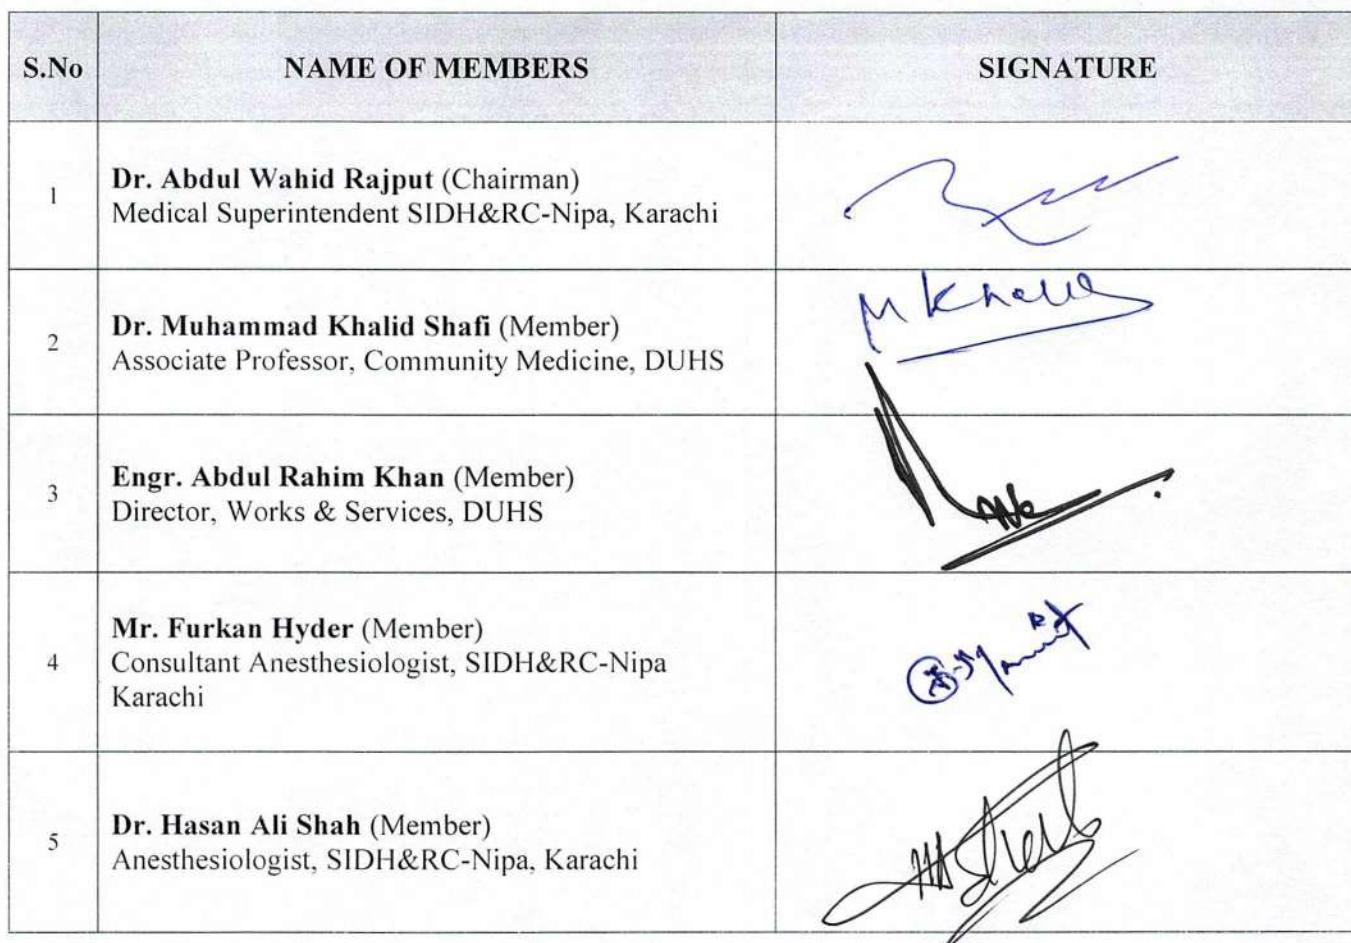 S.No NAME OF MEMBERS SIGNATURE
1 Dr. Abdul Wahid Rajput (Chairman)
Medical Superintendent SIDH&RC-Nipa, Karachi
2 Dr. Muhammad Khalid Shafi (Member)
Associate Professor, Community Medicine, DUHS
M Khalid
3 Engr. Abdul Rahim Khan (Member)
Director, Works & Services, DUHS
4 Mr. Furkan Hyder (Member)
Consultant Anesthesiologist, SIDH&RC-Nipa
Karachi
5 Dr. Hasan Ali Shah (Member)
Anesthesiologist, SIDH&RC-Nipa, Karachi